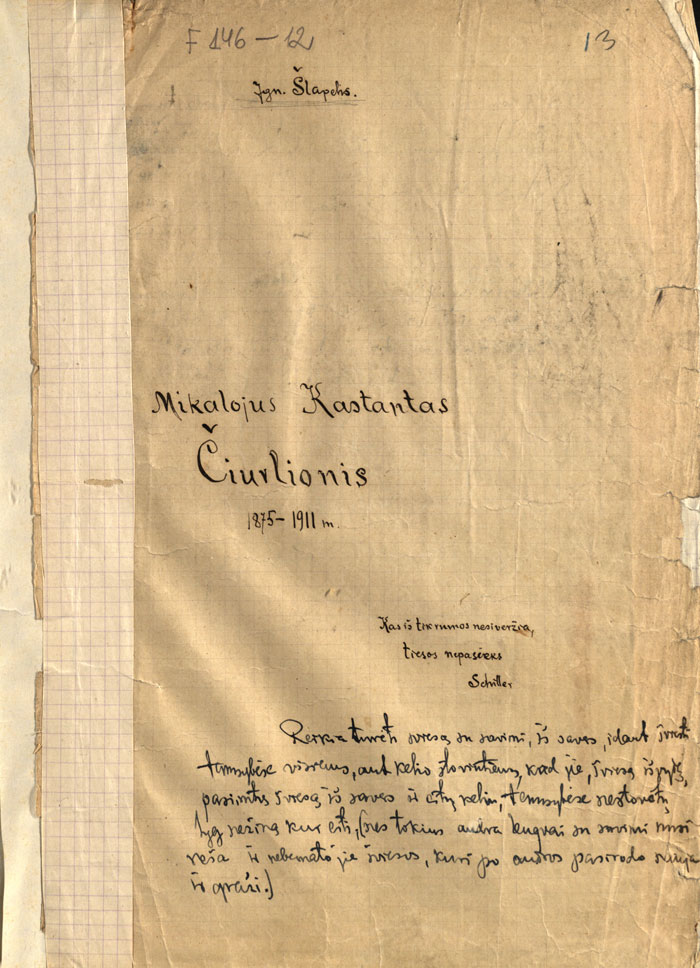 F 146 – 12
13
Ign. Šlapelis.
Mikalojus Kastantas
Čiurlionis
1875 – 1911 m.
Kas iš tikrumos nesiveržia,
tiesos nepasieks
Schiller
Reikia turėti šviesą su savimi, iš savęs, idant šviesti
tamsybėse visiems, ant kelio stovintiems, kad jie, šviesą išvydę,
pasiimtų šviesą iš savęs ir eitų keliu, tamsybėse nestovėtų
lyg nežiną kur eiti, (nes tokius audra lengvai su savimi nusi
neša ir nebemato jie šviesos, kuri po audros pasirodo nauja
ir graži.)